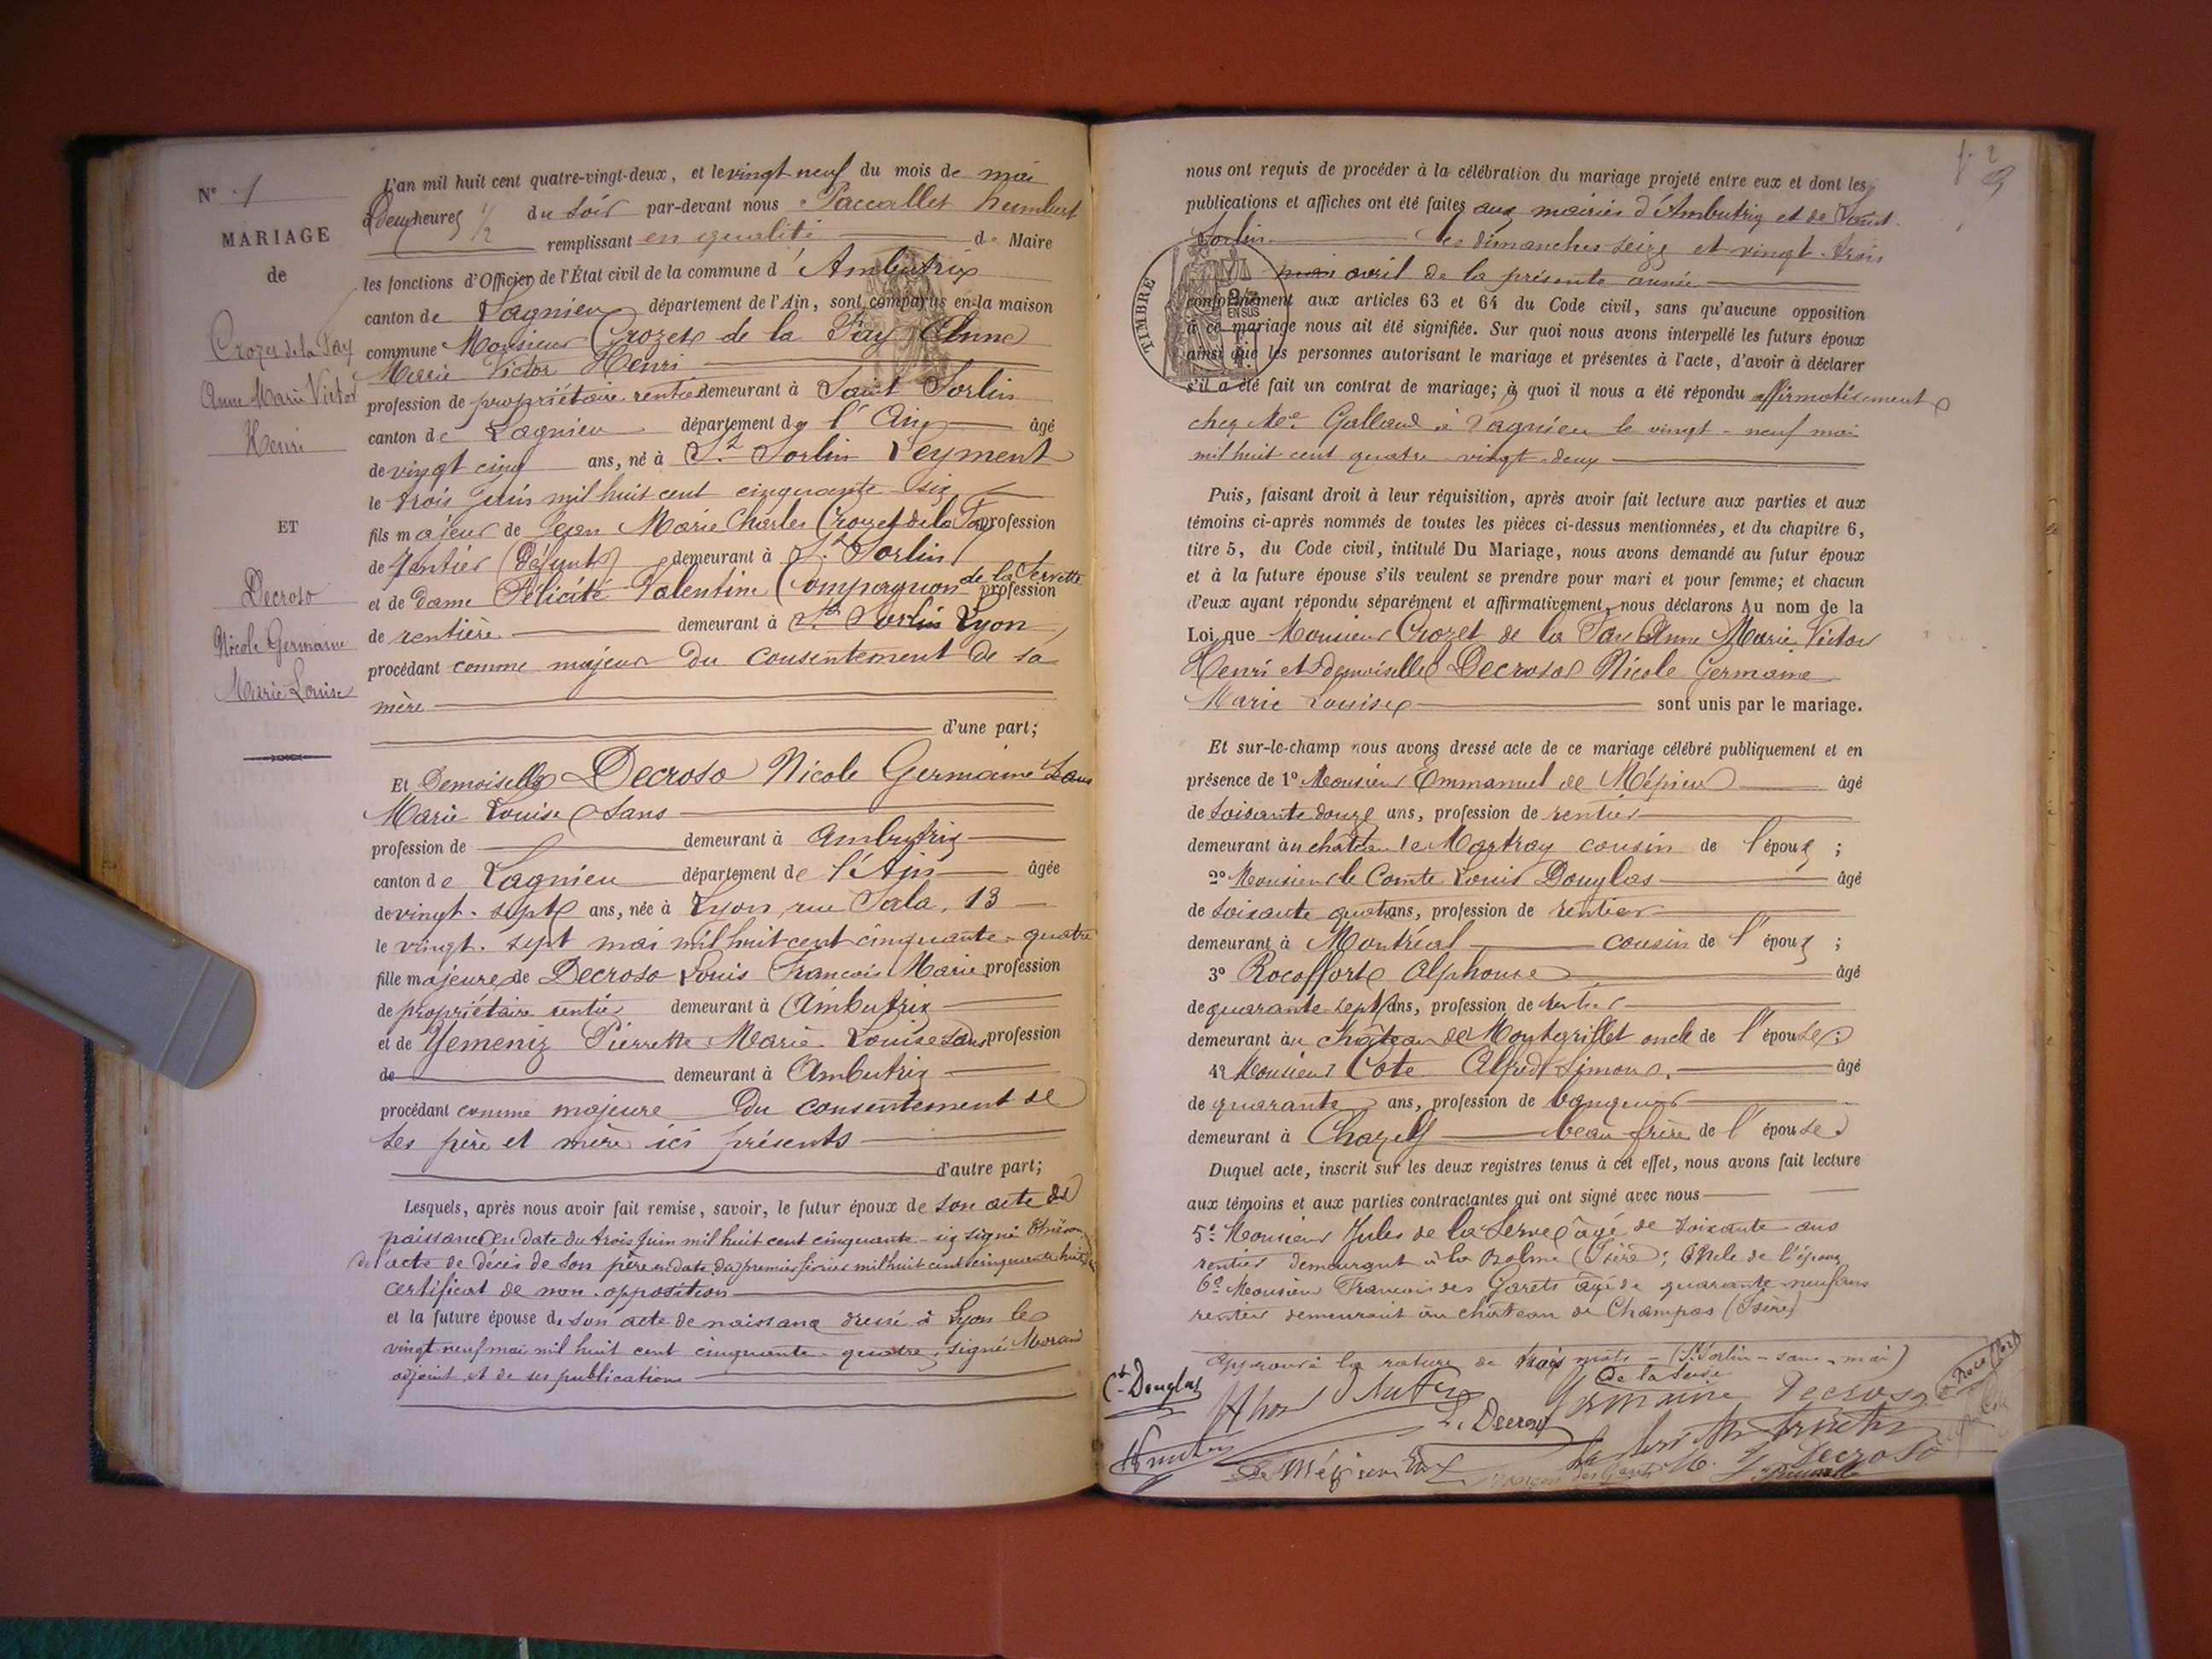 N° 1
MARIAGE
de
Crozet de la Fay
Anne Marie Victor
Henri
ET
Decroso
Nicole Germaine
Marie Louise
L'an mil huit cent quatre-vingt-deux, et le vingt neuf du mois de mai
à deux heures 1/2 du soir par-devant nous Paccallet humbert
remplissant en qualité de Maire
les fonctions d'Officier de l'État civil de la commune d'Ambutrix
canton de Lagnieu département de l'Ain, sont comparus en la maison
commune Monsieur Crozet de la Fay Anne
Marie Victor Henri
profession de propriétaire rentier demeurant à Saint Sorlin
canton de Lagnieu département de l'Ain âgé
de vingt cinq ans, né à St Sorlin Leyment
le trois juin mil huit cent cinquante six
fils majeur de Jean Marie Charles Crozet de la Fay profession
de rentier (défunt) demeurant à St Sorlin
et de Dame Félicité Valentine Compagnon de la Servette profession
de rentière demeurant à St Sorlin Lyon
procédant comme majeur du consentement de sa
mère
d'une part;
Et Demoiselle Decroso Nicole Germaine Sans
Marie Louise sans
profession de demeurant à Ambutrix
canton de Lagnieu département de l'Ain âgée
de vingt-sept ans, née à Lyon, rue Sala, 13
le vingt-sept mai mil huit cent cinquante-quatre
fille majeure de Decroso Louis François Marie profession
de propriétaire rentier demeurant à Ambutrix
et de Yemeniz Pierrette Marie Louise sans profession
de demeurant à Ambutrix
procédant comme majeure du consentement de
ses père et mère ici présents
d'autre part;
Lesquels, après nous avoir fait remise, savoir, le futur époux de son acte de
naissance en date du trois juin mil huit cent cinquante-six signé
de l'acte de décès de son père en date du premier février mil huit cent cinquante huit
certificat de non-opposition
et la future épouse de son acte de naissance dressé à Lyon le
vingt-neuf mai mil huit cent cinquante-quatre, signé Morand
adjoint et de ses publications
nous ont requis de procéder à la célébration du mariage projeté entre eux et dont les
publications et affiches ont été faites aux mairies d'Ambutrix et de Saint-
Sorlin les dimanches seize et vingt-trois
mai avril de la présente année
conformément aux articles 63 et 64 du Code civil, sans qu'aucune opposition
à ce mariage nous ait été signifiée. Sur quoi nous avons interpellé les futurs époux
ainsi que les personnes autorisant le mariage et présentes à l'acte, d'avoir à déclarer
s'il a été fait un contrat de mariage; à quoi il nous a été répondu affirmativement
chez Me Galland à Lagnieu le vingt-neuf mai
mil huit cent quatre-vingt-deux
TIMBRE
EN SUS
Puis, faisant droit à leur réquisition, après avoir fait lecture aux parties et aux
témoins ci-après nommés de toutes les pièces ci-dessus mentionnées, et du chapitre 6,
titre 5, du Code civil, intitulé Du Mariage, nous avons demandé au futur époux
et à la future épouse s'ils veulent se prendre pour mari et pour femme; et chacun
d'eux ayant répondu séparément et affirmativement, nous déclarons Au nom de la
Loi, que Monsieur Crozet de la Fay Anne Marie Victor
Henri et demoiselle Decroso Nicole Germaine
Marie Louise sont unis par le mariage.
Et sur-le-champ nous avons dressé acte de ce mariage célébré publiquement et en
présence de 1° Monsieur Emmanuel de Mépieu âgé
de soixante douze ans, profession de rentier
demeurant au château le Martray cousin de l'époux;
2° Monsieur le Comte Louis Douglas âgé
de soixante quatre ans, profession de rentier
demeurant à Montréal cousin de l'époux;
3° Rocoffort Alphonse âgé
de quarante sept ans, profession de rentier
demeurant au château de Montgrillet oncle de l'épouse;
4° Monsieur Cote Alfred Simon âgé
de quarante ans, profession de banquier
demeurant à Chazey beau-frère de l'épouse
Duquel acte, inscrit sur les deux registres tenus à cet effet, nous avons fait lecture
aux témoins et aux parties contractantes qui ont signé avec nous
5° Monsieur Jules de la Serve âgé de soixante ans
rentier demeurant à la Balme (Isère); oncle de l'époux
6° Monsieur François des Garets âgé de quarante-neuf ans
rentier demeurant au château de Champas (Isère)
Approuvé la rature de trois mots - (St Sorlin - sans - mai)
Ct Douglas
L. Decroso
Germaine Decroso
de Mépieu
François des Garets
M. Y. Decroso